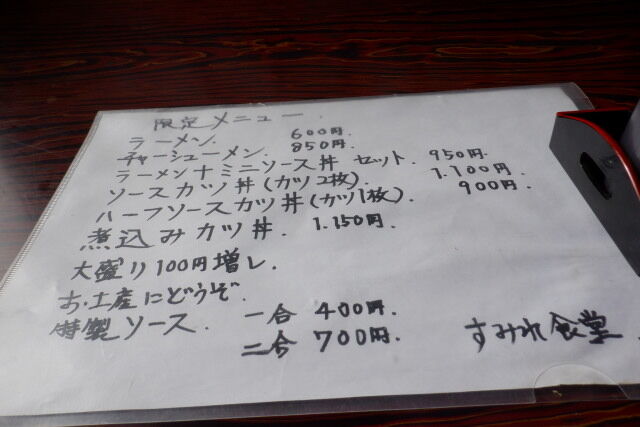 限定メニュー
ラーメン. 600円.
チャーシューメン. 850円.
ラーメン+ミニソース丼 セット. 950円.
ソースカツ丼(カツ2枚). 1.100円.
ハーフソースカツ丼(カツ1枚). 900円.
煮込みカツ丼. 1.150円.
大盛り100円増し.
お.土産にどうぞ.
特製ソース. 一合 400円.
二合 700円.
すみれ食堂